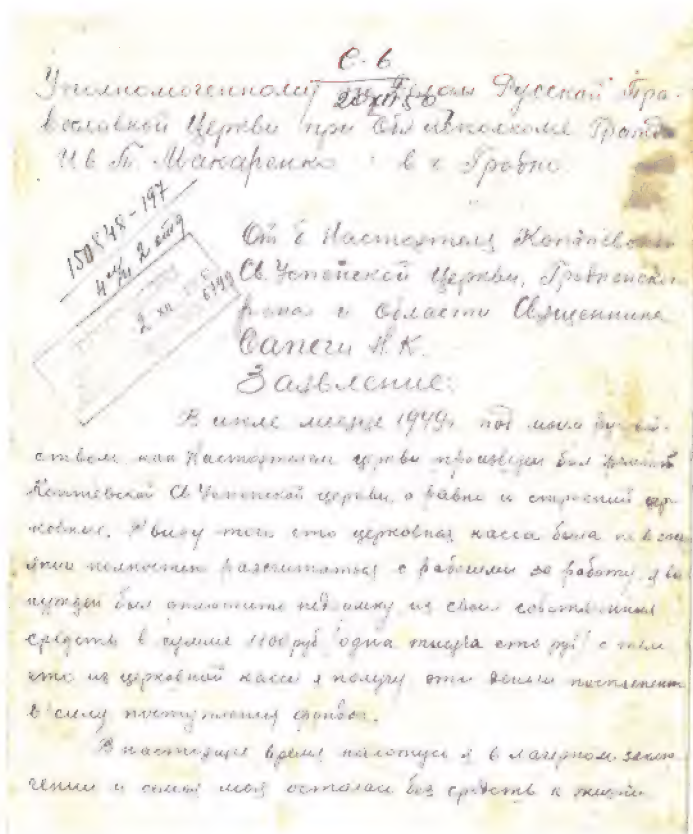 С-6
Уполномоченному по Делам Русской Пра-
вославной Церкви при Облисполкоме Гродн
И в Т. Макаренко в г. Гродно
20 XII 50
150848-197
2 отд
2 XII
6749
От б Настоятеля Коптевской
Св. Успенской Церкви, Гродненско
района и области Священника
Сапеги Н. К.
Заявление:
В июле месяце 1949г. под моим
ством как Настоятелем церкви произведен был ремонт
Коптевской Св. Успенской церкви, а равно и строений цер
ковных. Ввиду того что церковная касса была не в сос
янии полностью рассчитаться с рабочими за работу, я вы
нужден был оплатить недоимку из своих собственных
средств в сумме 1100 руб (одна тысяча сто руб) с тем
что из церковной кассы я получу эти деньги постепенно
в силу поступления фондов.
В настоящее время нахожусь я в лагерном заклю
чении и семья моя осталась без средств к жизни